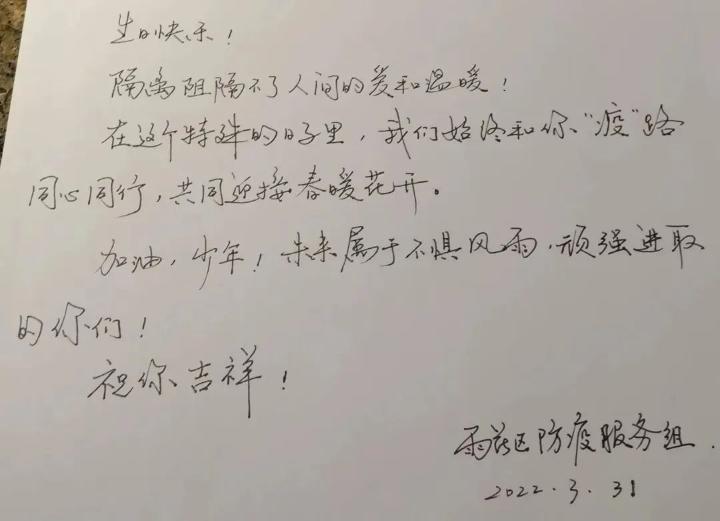 生日快乐!
隔离阻隔不了人间的爱和温暖!
在这个特殊的日子里,我们始终和你“疫”路
同心同行,共同迎接春暖花开。
加油,少年!未来属于不惧风雨,顽强进取
的你们!
祝你吉祥!
雨花区防疫服务组.
2022.3.31